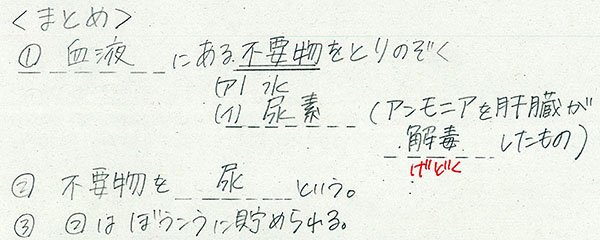 <まとめ>
① 血液 にある不要物をとりのぞく
(ア) 水
(イ) 尿素 (アンモニアを肝臓が
解毒 したもの)
げどく
② 不要物を 尿 という。
③ ② は ぼうこうに貯められる。